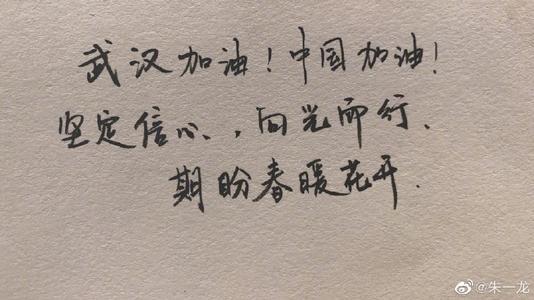 武汉加油!中国加油!
坚定信心,向光而行.
期盼春暖花开.
@朱一龙